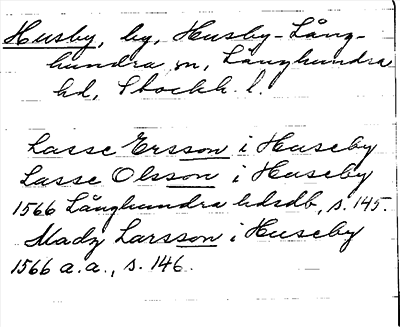 Husby, by, Husby-Lång-
hundra sn, Långhundra
hd, Stockh. l.
Lasse Ersson i Huseby
Lasse Olsson i Huseby
1566 Långhundra hdsdb, s. 145.
Madz Larsson i Huseby
1566 a.a., s. 146.